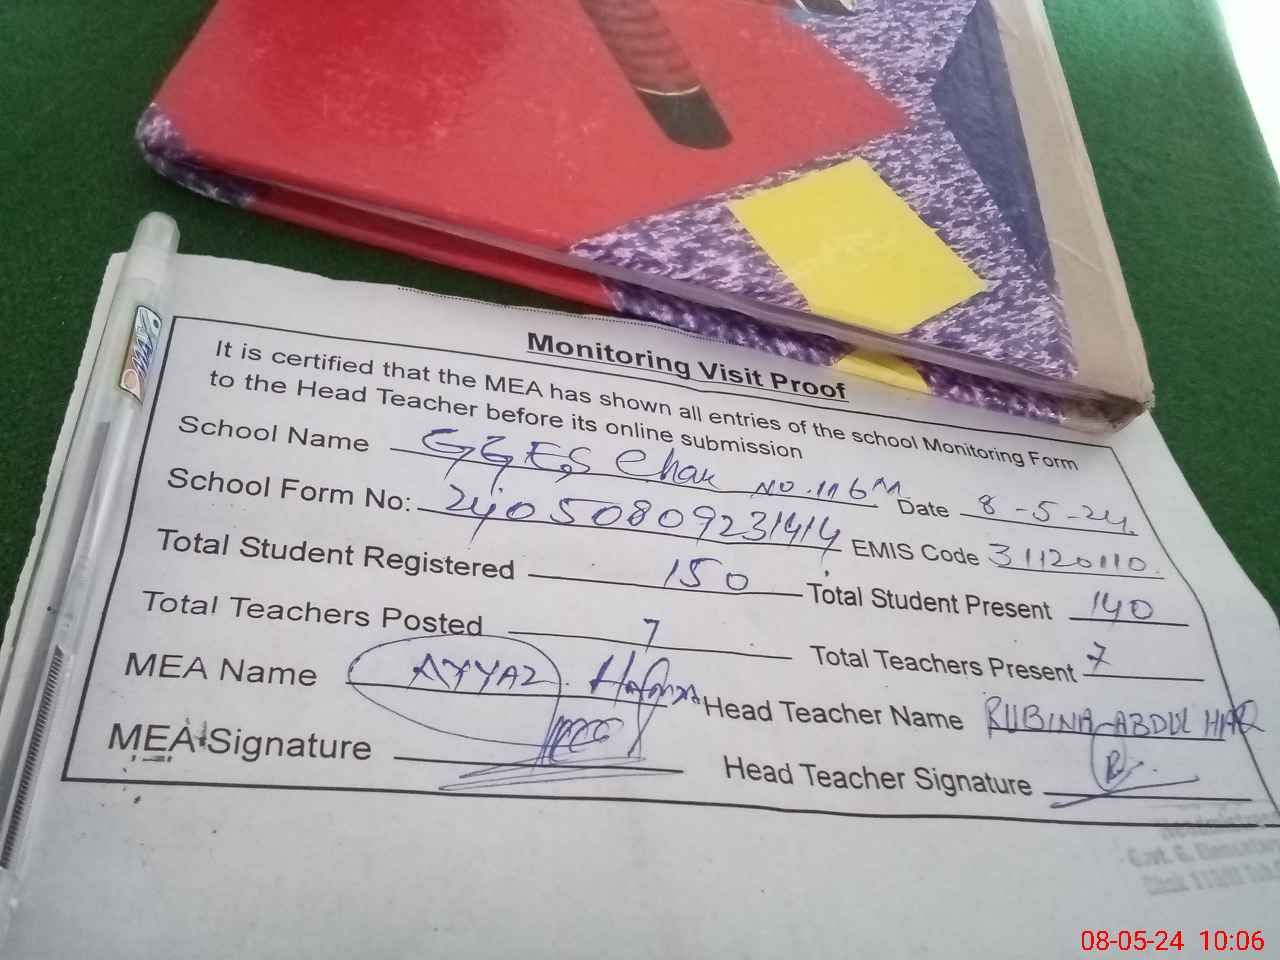 Monitoring Visit Proof
It is certified that the MEA has shown all entries of the school Monitoring Form
to the Head Teacher before its online submission
School Name GGES Chak NO.116M Date 8-5-24.
School Form No: 24050809231414 EMIS Code 31120110.
Total Student Registered 150 Total Student Present 140
Total Teachers Posted 7 Total Teachers Present 7
MEA Name AYYAZ. Head Teacher Name RUBINA ABDUL HAQ
MEA Signature Head Teacher Signature
08-05-24 10:06